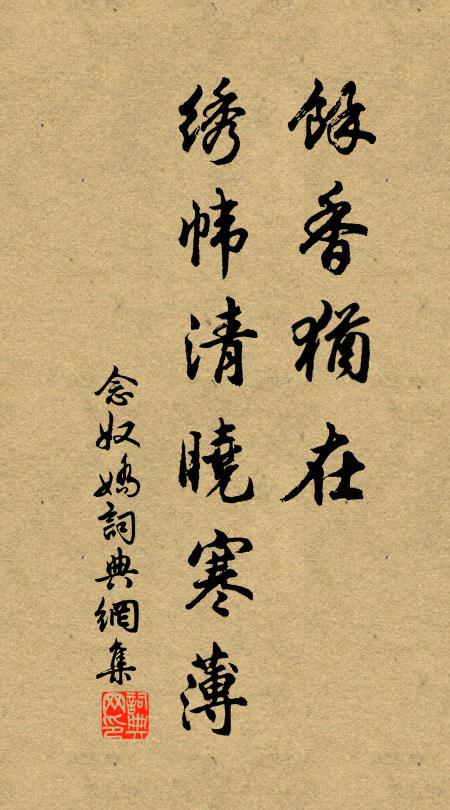 餘香猶在
绣帏清曉寒薄
念奴嬌詞典網集
詞典
网印